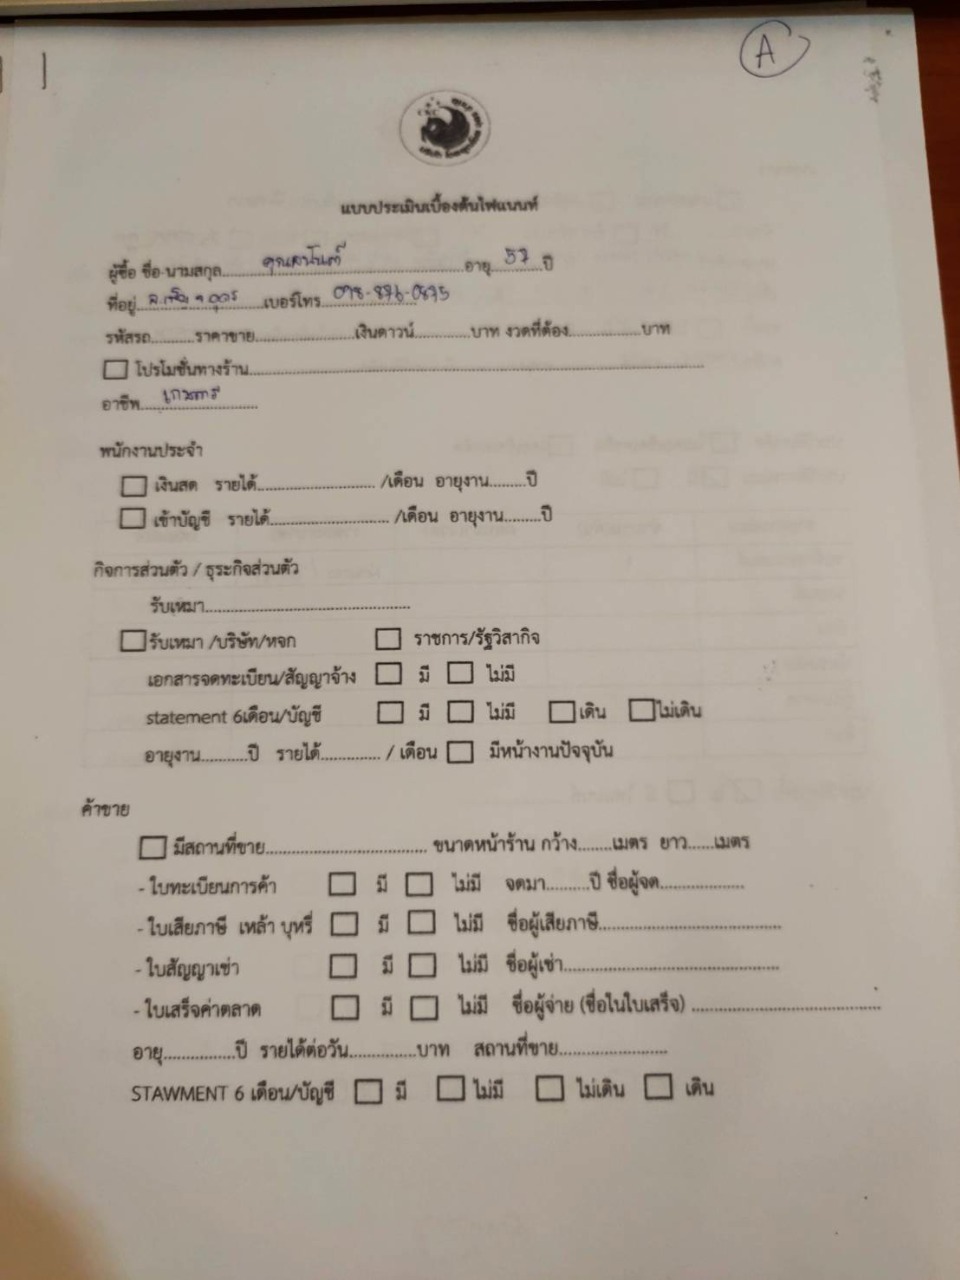 A
แบบประเมินเบื้องต้นไฟแนนท์
ผู้ซื้อ ชื่อ-นามสกุล.................... อายุ...57...ปี
ที่อยู่....................เบอร์โทร...098-876-0875
รหัสรถ..........ราคาขาย.......................เงินดาวน์.............บาท งวดที่ต้อง.................บาท
☐ โปรโมชั่นทางร้าน....................
อาชีพ...เกษตร
พนักงานประจำ
☐ เงินสด รายได้............................ /เดือน อายุงาน.........ปี
☐ เข้าบัญชี รายได้............................ /เดือน อายุงาน.........ปี
กิจการส่วนตัว / ธุระกิจส่วนตัว
รับเหมา..................................................
☐ รับเหมา /บริษัท/หจก ☐ ราชการ/รัฐวิสากิจ
เอกสารจดทะเบียน/สัญญาจ้าง ☐ มี ☐ ไม่มี
statement 6เดือน/บัญชี ☐ มี ☐ ไม่มี ☐ เดิน ☐ ไม่เดิน
อายุงาน...........ปี รายได้.............. / เดือน ☐ มีหน้างานปัจจุบัน
ค้าขาย
☐ มีสถานที่ขาย....................................... ขนาดหน้าร้าน กว้าง........เมตร ยาว......เมตร
- ใบทะเบียนการค้า ☐ มี ☐ ไม่มี จดมา..........ปี ชื่อผู้จด....................
- ใบเสียภาษี เหล้า บุหรี่ ☐ มี ☐ ไม่มี ชื่อผู้เสียภาษี...........................................
- ใบสัญญาเช่า ☐ มี ☐ ไม่มี ชื่อผู้เช่า...................................................
- ใบเสร็จค่าตลาด ☐ มี ☐ ไม่มี ชื่อผู้จ่าย (ชื่อในใบเสร็จ) .............................................
อายุ.................ปี รายได้ต่อวัน................บาท สถานที่ขาย..........................
STAWMENT 6 เดือน/บัญชี ☐ มี ☐ ไม่มี ☐ ไม่เดิน ☐ เดิน